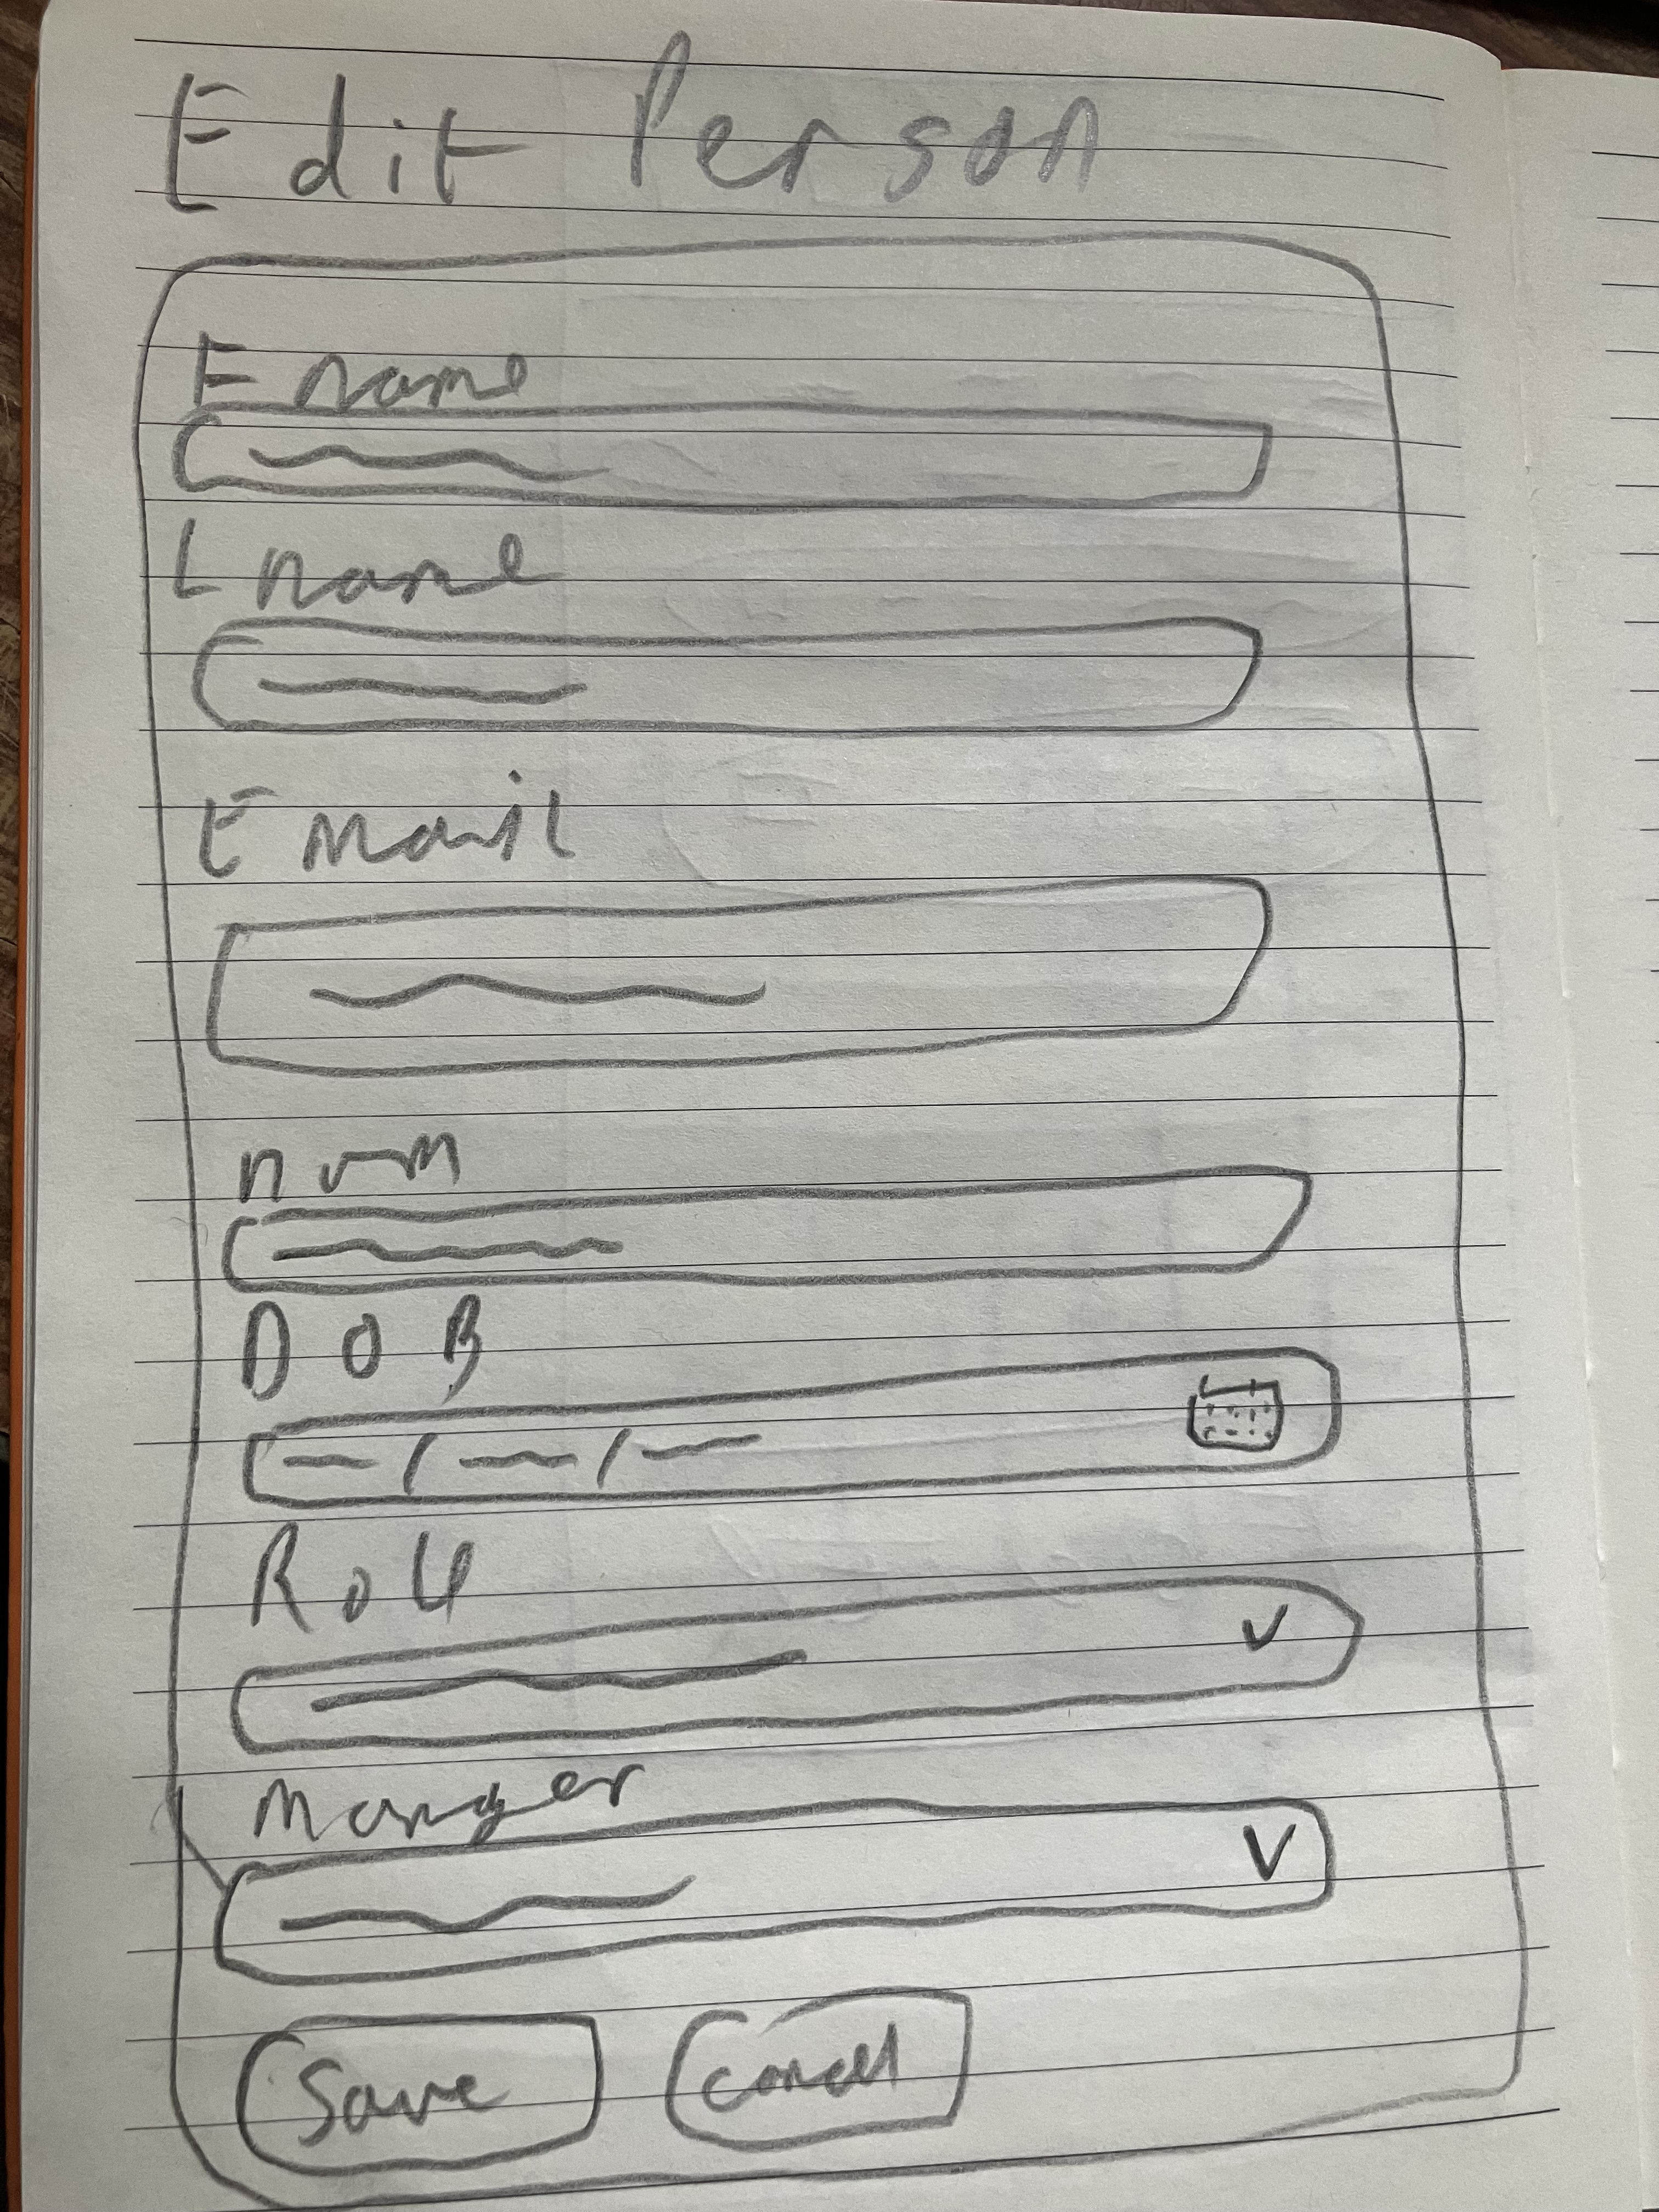 Edit Person
F name
L name
E Mail
num
DOB
Role
Manger
Save
Cancel